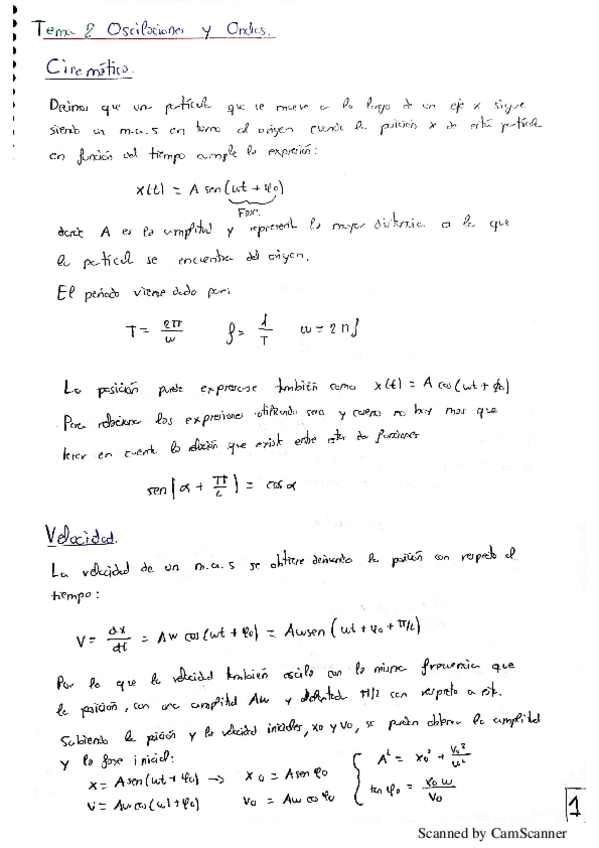 Tema 2 Oscilaciones y Ondas.
Cinemática.
Decimos que una partícula que se mueve a lo largo de un eje x sigue
siendo un m.a.s en torno al origen cuando la posición x de está partícula
en función del tiempo cumple la expresión:
x(t) = A sen(ωt + φ0)
Fase.
donde A es la amplitud y representa la mayor distancia a la que
la partícula se encuentra del origen.
El periodo viene dado por:
T = 2π/ω f = 1/T ω = 2πf
La posición puede expresarse también como x(t) = A cos(ωt + ϕ0)
Para relacionar las expresiones utilizando seno y coseno no hay mas que
tener en cuenta la relación que existe entre estas dos funciones
sen(α + π/2) = cos α
Velocidad.
La velocidad de un m.a.s se obtiene derivando la posición con respeto al
tiempo:
V = dx/dt = Aω cos(ωt + φ0) = Aω sen(ωt + φ0 + π/2)
Por lo que la velocidad también oscila con la misma frecuencia que
la posición, con una amplitud Aω y π/2 con respeto a esta.
Sabiendo la posición y la velocidad iniciales, x0 y v0, se pueden obtener la amplitud
y la fase inicial:
x = A sen(ωt + φ0) → x0 = A sen φ0 A² = x0² + v0²/ω²
v = Aω cos(ωt + φ0) v0 = Aω cos φ0 tan φ0 = x0 ω/v0
1
Scanned by CamScanner